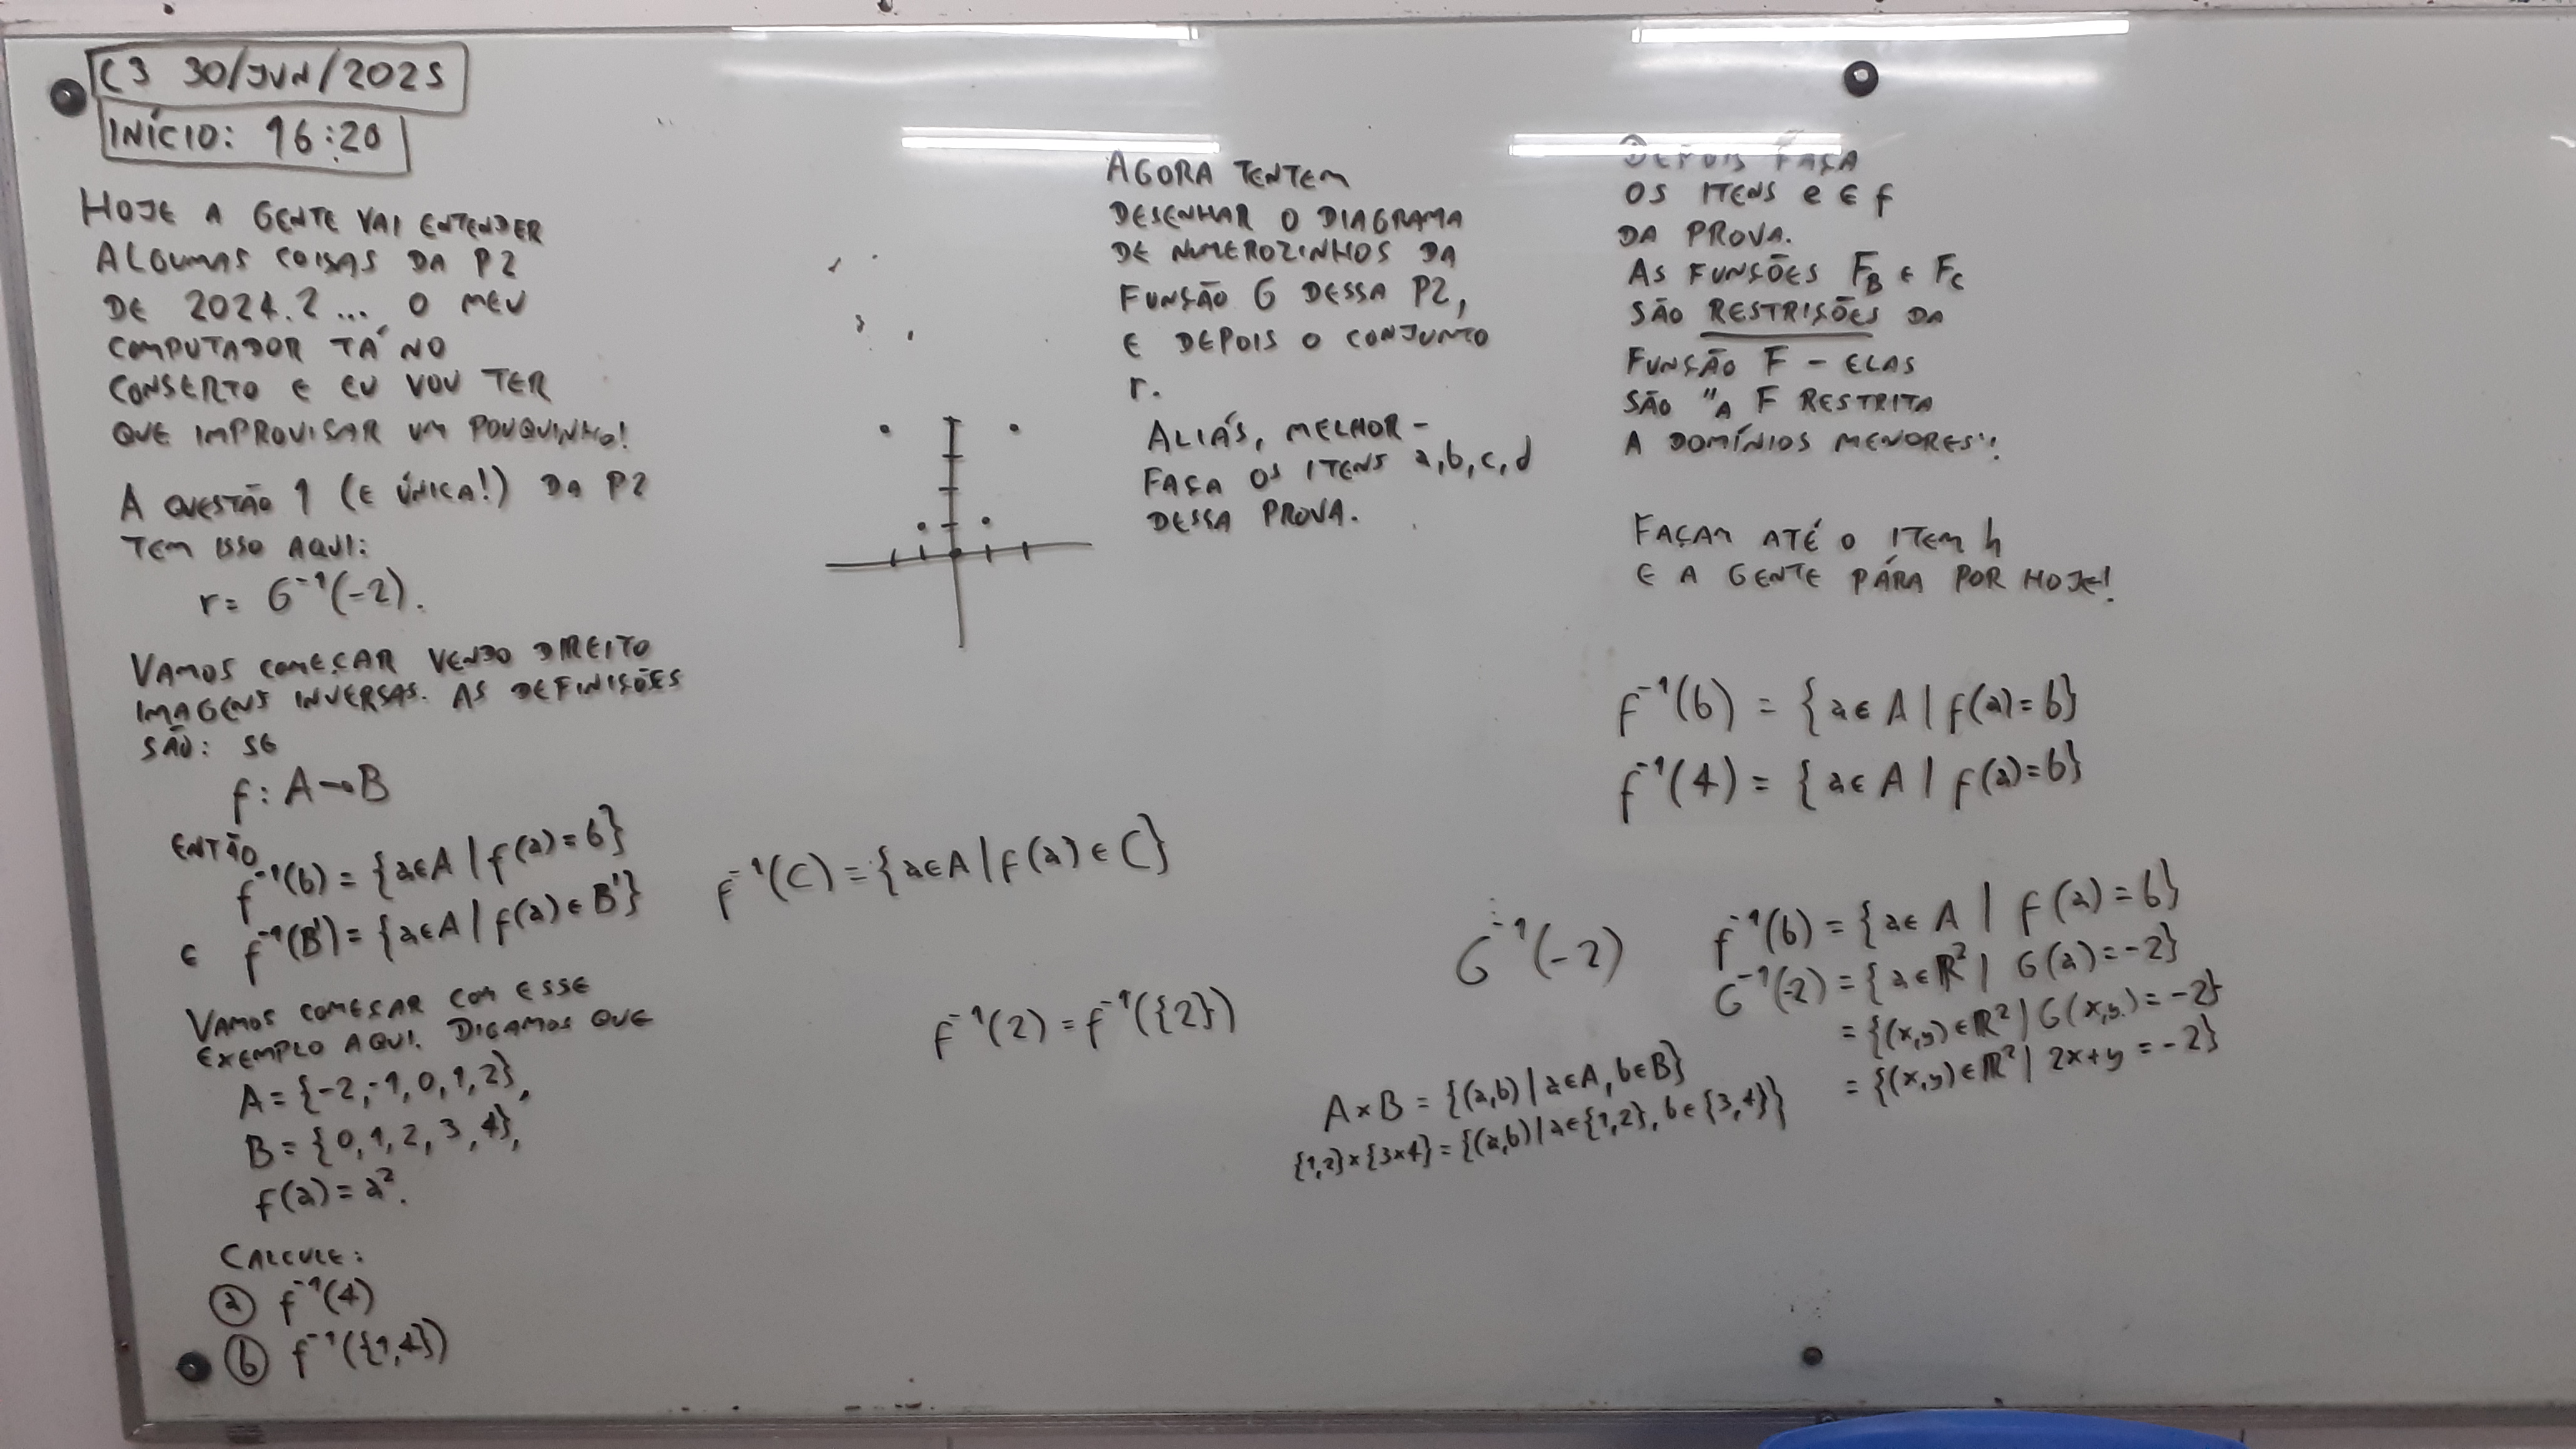 C3 30/JUN/2025
INÍCIO: 16:20
HOJE A GENTE VAI ENTENDER
ALGUMAS COISAS DA P2
DE 2024.2... O MEU
COMPUTADOR TÁ NO
CONSERTO E EU VOU TER
QUE IMPROVISAR UM POUQUINHO!
A QUESTÃO 1 (E ÚNICA!) DA P2
TEM ISSO AQUI:
r = G⁻¹(-2).
VAMOS COMEÇAR VENDO DIREITO
IMAGENS INVERSAS. AS DEFINIÇÕES
SÃO: SE
f: A→B
ENTÃO
f⁻¹(b) = {a∈A | f(a)=b}
E f⁻¹(B') = {a∈A | f(a)∈B'}
VAMOS COMEÇAR COM ESSE
EXEMPLO AQUI. DIGAMOS QUE
A = {-2,-1,0,1,2},
B = {0,1,2,3,4},
f(a) = a².
CALCULE:
a f⁻¹(4)
b f⁻¹({1,4})
f⁻¹(C) = {a∈A | f(a)∈C}
f⁻¹(2) = f⁻¹({2})
AGORA TENTEM
DESENHAR O DIAGRAMA
DE NUMEROZINHOS DA
FUNÇÃO G DESSA P2,
E DEPOIS O CONJUNTO
r.
ALIÁS, MELHOR –
FAÇA OS ITENS a,b,c,d
DESSA PROVA.
DEPOIS FAÇA
OS ITENS e E f
DA PROVA.
AS FUNÇÕES F_B E F_C
SÃO RESTRIÇÕES DA
FUNÇÃO F – ELAS
SÃO "A F RESTRITA
A DOMÍNIOS MENORES"!
FAÇAM ATÉ O ITEM h
E A GENTE PÁRA POR HOJE!
f⁻¹(b) = {a∈A | f(a)=b}
f⁻¹(4) = {a∈A | f(a)=b}
G⁻¹(-2)
f⁻¹(b) = {a∈A | f(a)=b}
G⁻¹(-2) = {a∈ℝ² | G(a)=-2}
= {(x,y)∈ℝ² | G(x,y)=-2}
= {(x,y)∈ℝ² | 2x+y=-2}
A×B = {(a,b) | a∈A, b∈B}
{1,2}×{3×4} = {(a,b) | a∈{1,2}, b∈{3,4}}